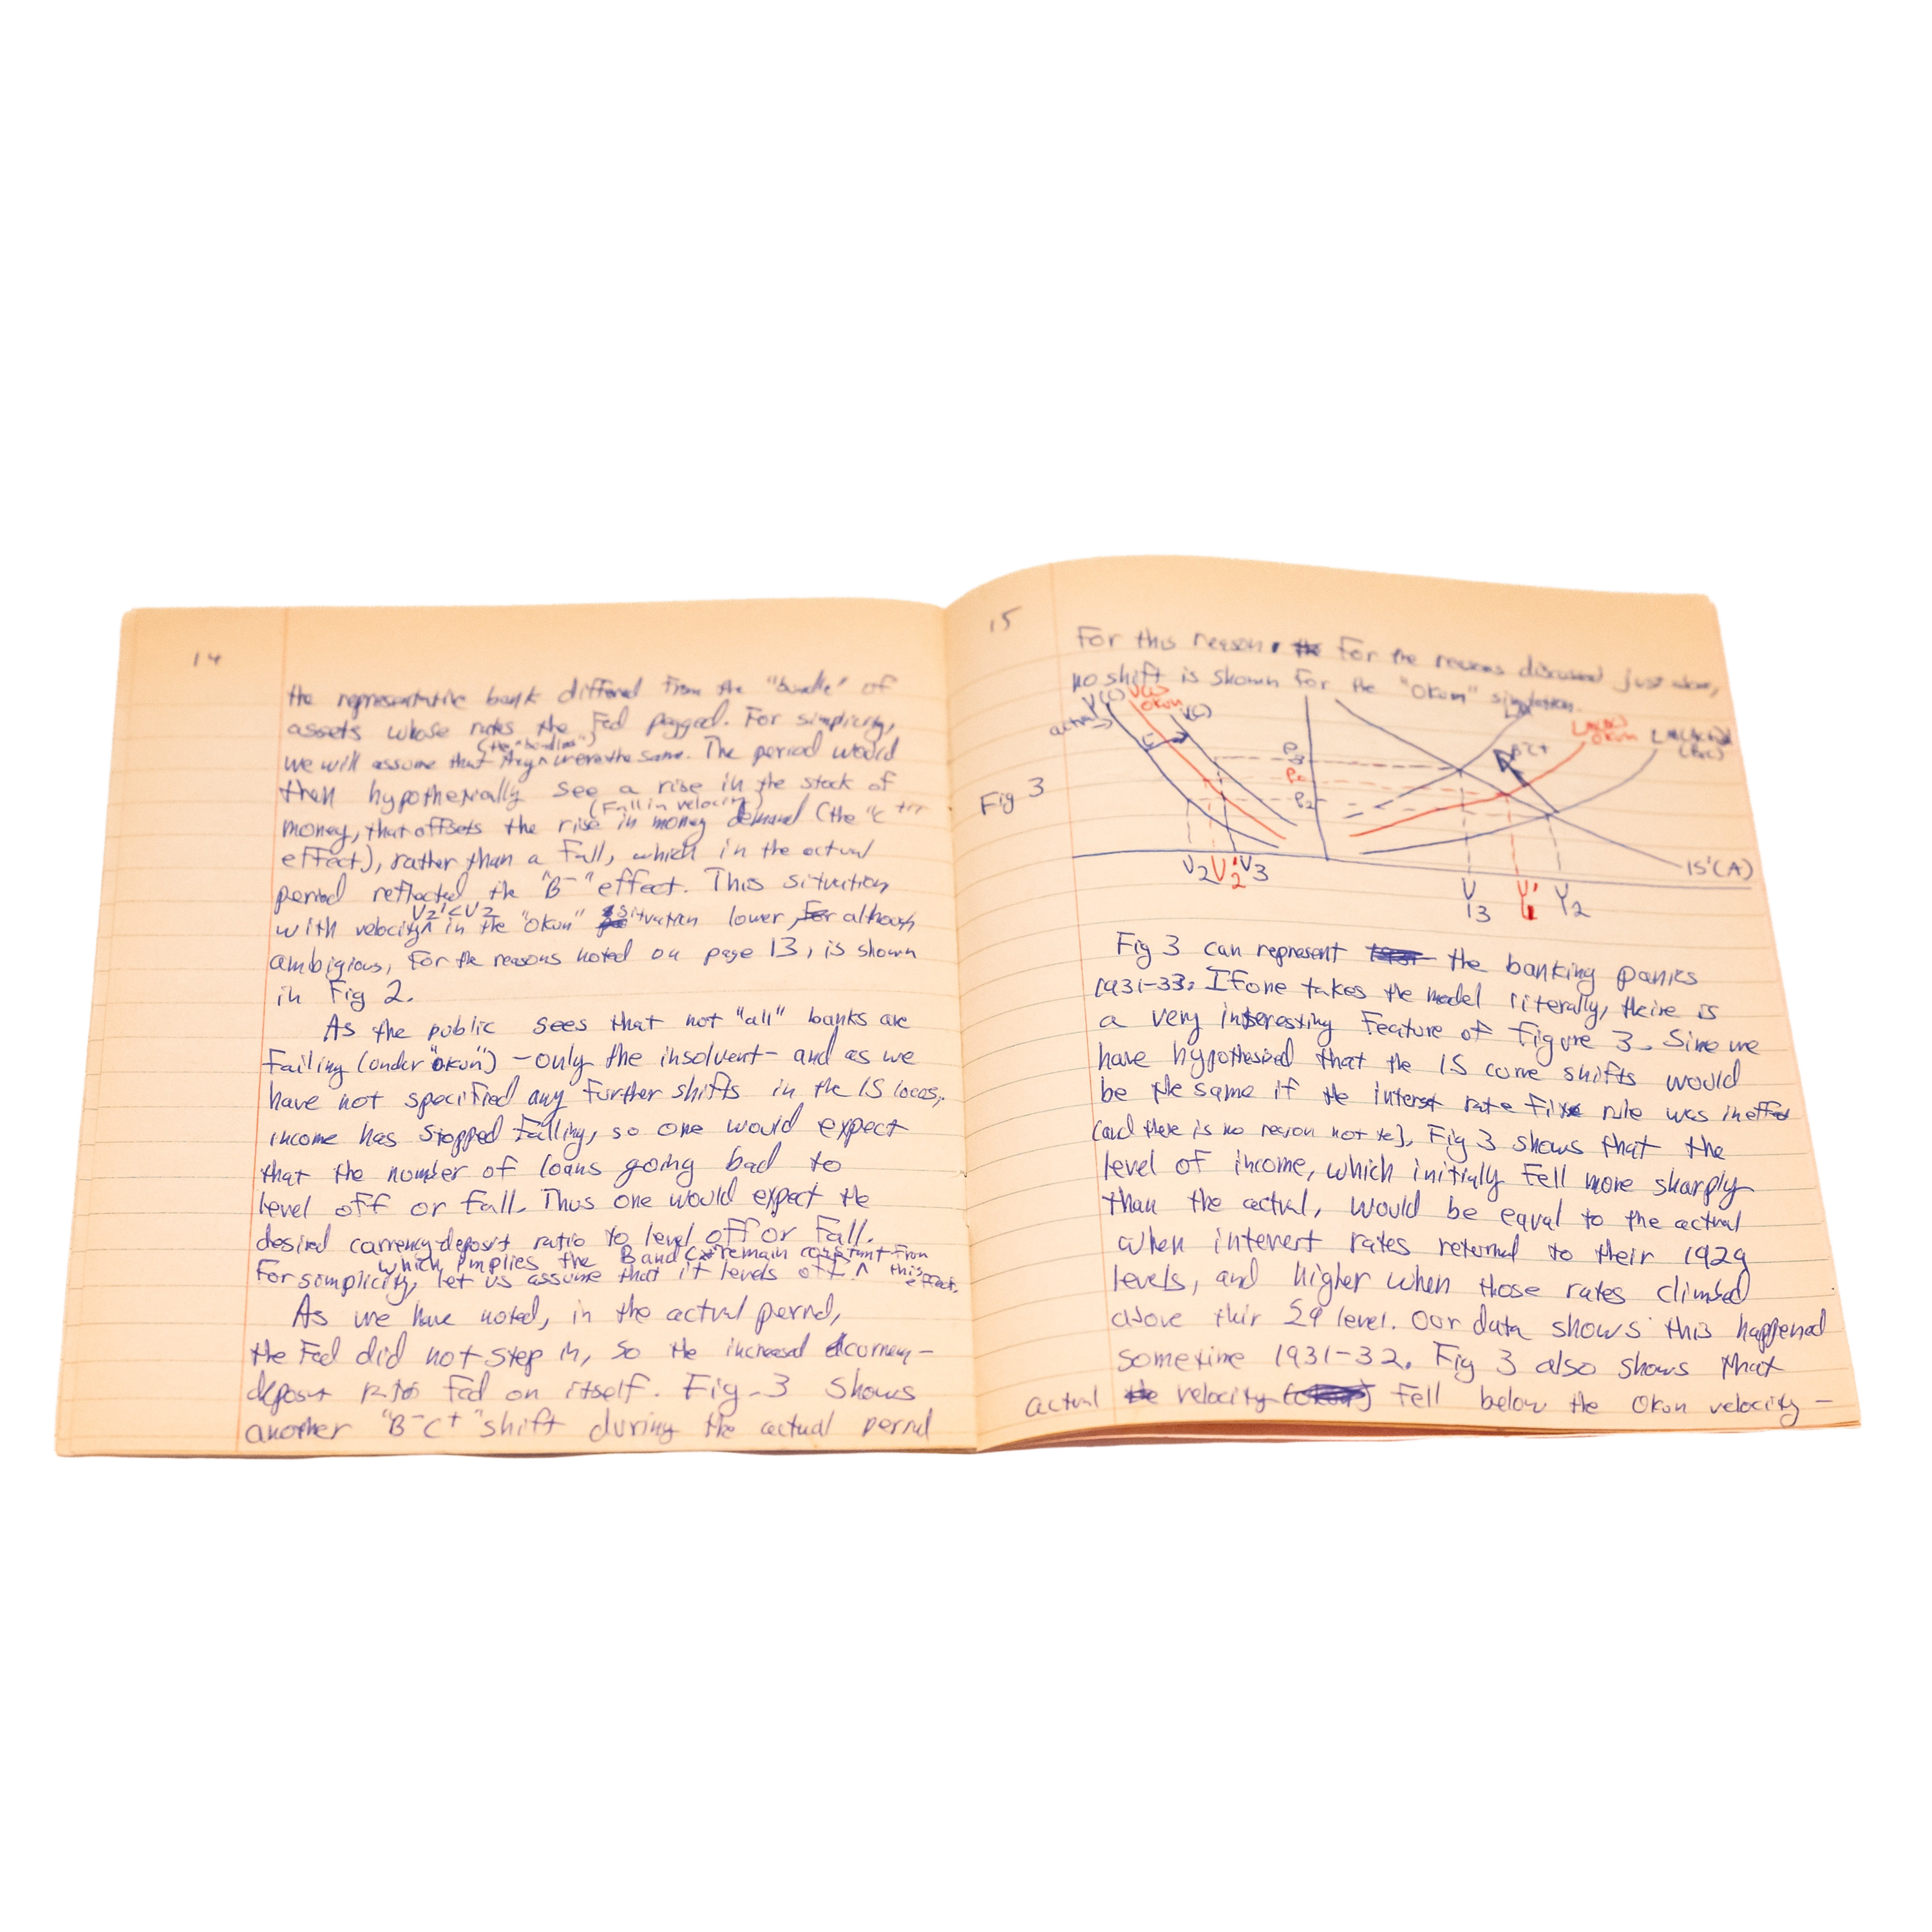 14
the representative bank differed from the "bundle" of
assets whose rates the Fed pegged. For simplicity,
(the "bundles")
we will assume that they were the same. The period would
then hypothetically see a rise in the stock of
(Fall in velocity)
money, that offsets the rise in money demand (the "C
effect), rather than a Fall, which in the actual
period reflected the "B-" effect. This situation
V2' < V2
with velocity in the "Okun" situation lower, for although
ambigious, for the reasons noted on page 13, is shown
in Fig 2.
As the public sees that not "all" banks are
Failing (under "Okun") - only the insolvent - and as we
have not specified any further shifts in the IS locus,
income has stopped falling, so one would expect
that the number of loans going bad to
level off or fall. Thus one would expect the
desired currency-deposit ratio to level off or fall.
which implies the B and C remain constant from this effect.
For simplicity, let us assume that it levels off.
As we have noted, in the actual period,
the Fed did not step in, so the increased currency-
deposit ratio fed on itself. Fig-3 Shows
another "B-C+" shift during the actual period
15
For this reason, the For the reasons discussed just above,
no shift is shown for the "Okun" simulation.
Fig 3
actual
V( )
Okun
V( )
C
P3
P2
B-C+
Okun
IS'(A)
V2 V2' V3
Y3
Y2
Fig 3 can represent the banking panics
1931-33. If one takes the model literally, theire is
a very interesting Feature of Figure 3. Sine we
have hypothesized that the IS curve shifts would
be the same if the interst rate fix rule was in effect
(and there is no reason not to), Fig 3 shows that the
level of income, which initially fell more sharply
than the actual, would be equal to the actual
when interest rates returned to their 1929
levels, and higher when those rates climbed
above thir 29 level. Our data shows this happened
sometime 1931-32. Fig 3 also shows that
actual the velocity fell below the Okun velocity -